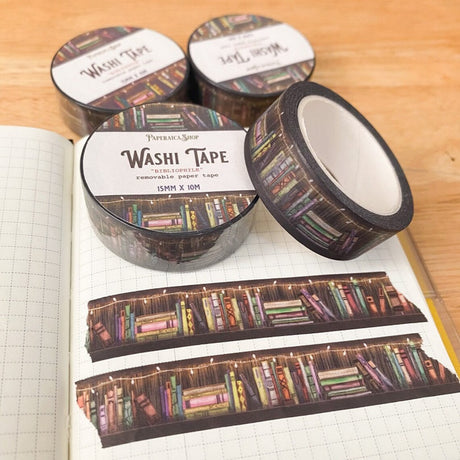 PAPERAICA SHOP
WASHI TAPE
"BIBLIOPHILE"
removable paper tape
15MM X 10M
WASHI TAPE
WASHI TAPE